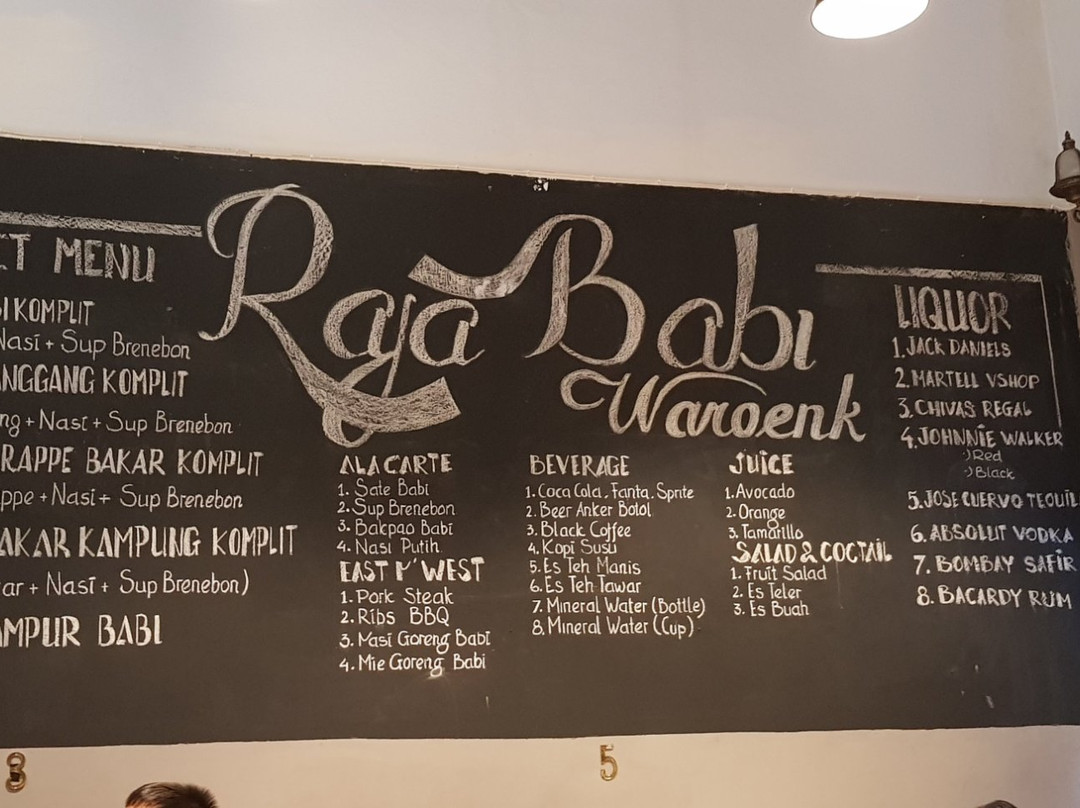 MENU
KOMPLIT
Nasi + Sup Brenebon
KOMPLIT
+ Nasi + Sup Brenebon
BAKAR KOMPLIT
+ Nasi + Sup Brenebon
KAMPUNG KOMPLIT
+ Nasi + Sup Brenebon)
BABI
Raja Babi
Waroenk
ALACARTE
1. Sate Babi
2. Sup Brenebon
3. Bakpao Babi
4. Nasi Putih
EAST N' WEST
1. Pork Steak
2. Ribs BBQ
3. Nasi Goreng Babi
4. Mie Goreng Babi
BEVERAGE
1. Coca Cola, Fanta, Sprite
2. Beer Anker Botol
3. Black Coffee
4. Kopi Susu
5. Es Teh Manis
6. Es Teh Tawar
7. Mineral Water (Bottle)
8. Mineral Water (Cup)
JUICE
1. Avocado
2. Orange
3. Tamarillo
SALAD & COCTAIL
1. Fruit Salad
2. Es Teler
3. Es Buah
LIQUOR
1. JACK DANIELS
2. MARTELL VSHOP
3. CHIVAS REGAL
4. JOHNNIE WALKER
-) Red
-) Black
5. JOSE CUERVO TEQUIL
6. ABSOLUT VODKA
7. BOMBAY SAFIR
8. BACARDY RUM
3
5